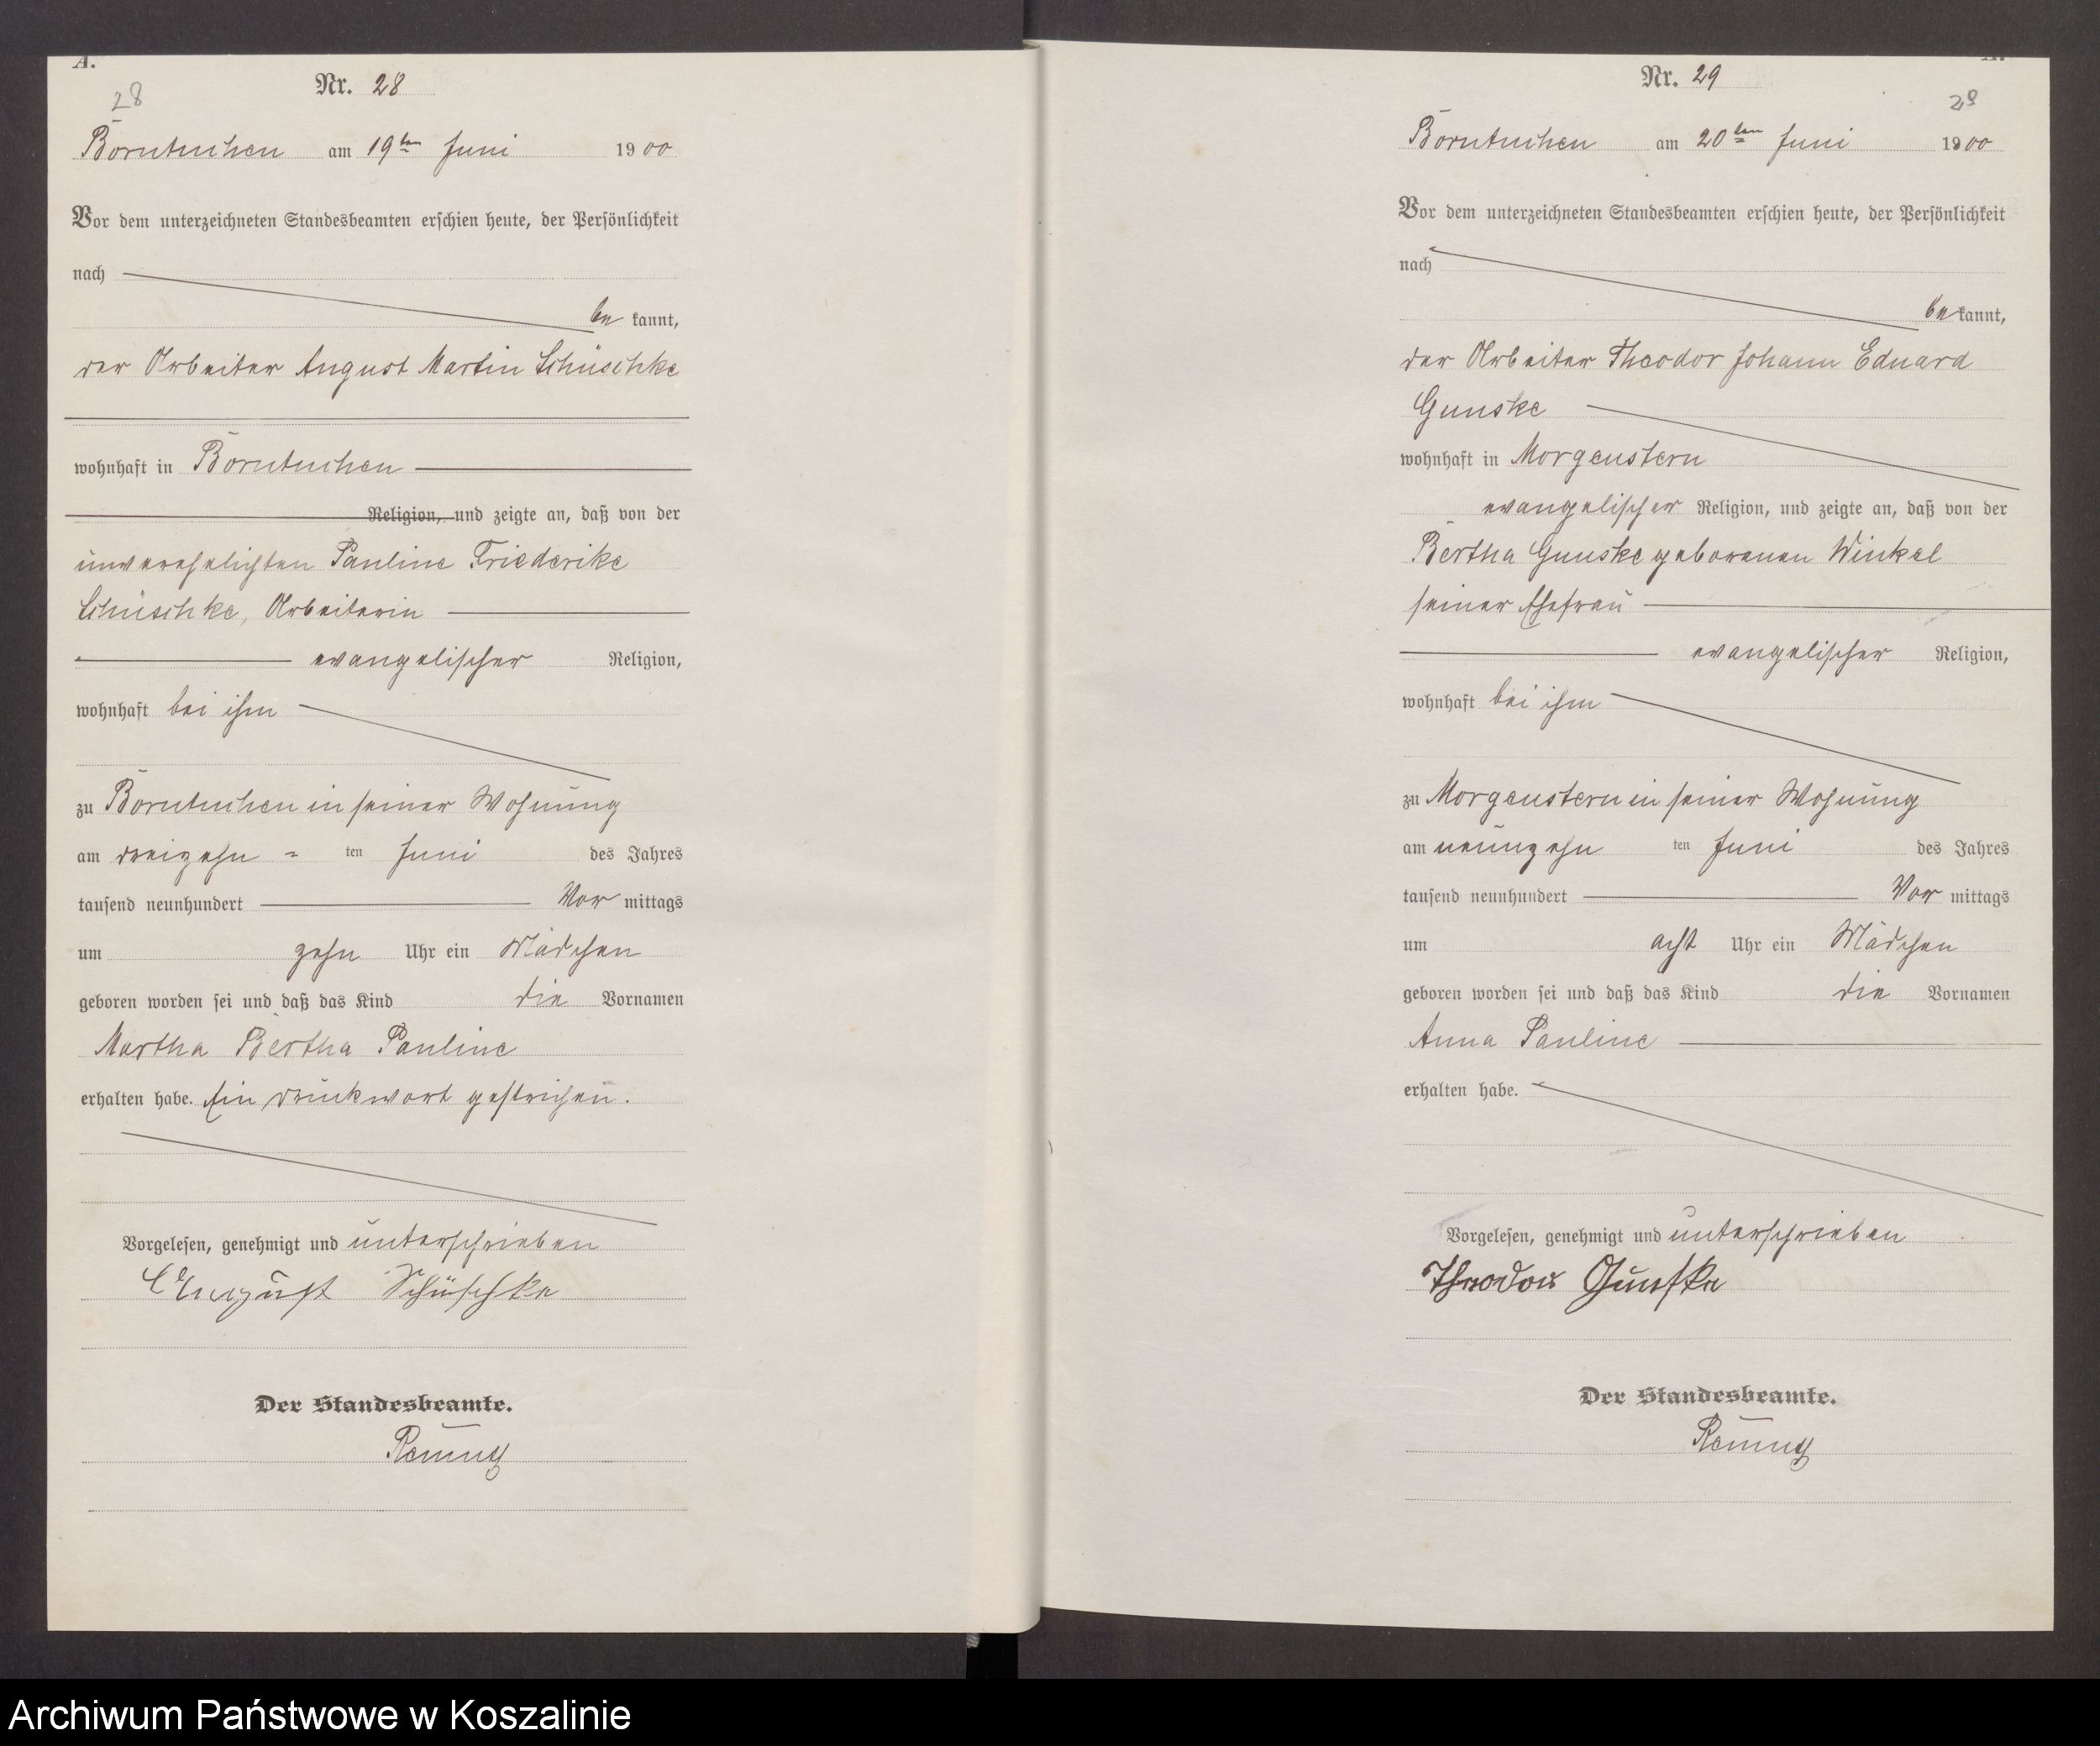 A.
Nr. 28
28
Borntuchen am 19ten Juni 1900
Vor dem unterzeichneten Standesbeamten erschien heute, der Persönlichkeit
nach
be kannt,
der Arbeiter August Martin Schüschke
wohnhaft in Borntuchen
Religion, und zeigte an, daß von der
unverehelichten Pauline Friederike
Schüschke, Arbeiterin
evangelischer Religion,
wohnhaft bei ihm
zu Borntuchen in seiner Wohnung
am dreizehn = ten Juni des Jahres
tausend neunhundert Vor mittags
um zehn Uhr ein Mädchen
geboren worden sei und daß das Kind die Vornamen
Martha Bertha Pauline
erhalten habe. Ein Druckwort gestrichen.
Vorgelesen, genehmigt und unterschrieben
August Schüschke
Der Standesbeamte.
A.
Nr. 29
29
Borntuchen am 20ten Juni 1900
Vor dem unterzeichneten Standesbeamten erschien heute, der Persönlichkeit
nach
be kannt,
der Arbeiter Theodor Johann Eduard
Gunske
wohnhaft in Morgenstern
evangelischer Religion, und zeigte an, daß von der
Bertha Gunske geborenen Winkel
seiner Ehefrau
evangelischer Religion,
wohnhaft bei ihm
zu Morgenstern in seiner Wohnung
am neunzehn ten Juni des Jahres
tausend neunhundert Vor mittags
um acht Uhr ein Mädchen
geboren worden sei und daß das Kind die Vornamen
Anna Pauline
erhalten habe.
Vorgelesen, genehmigt und unterschrieben
Theodor Gunske
Der Standesbeamte.
Archiwum Państwowe w Koszalinie